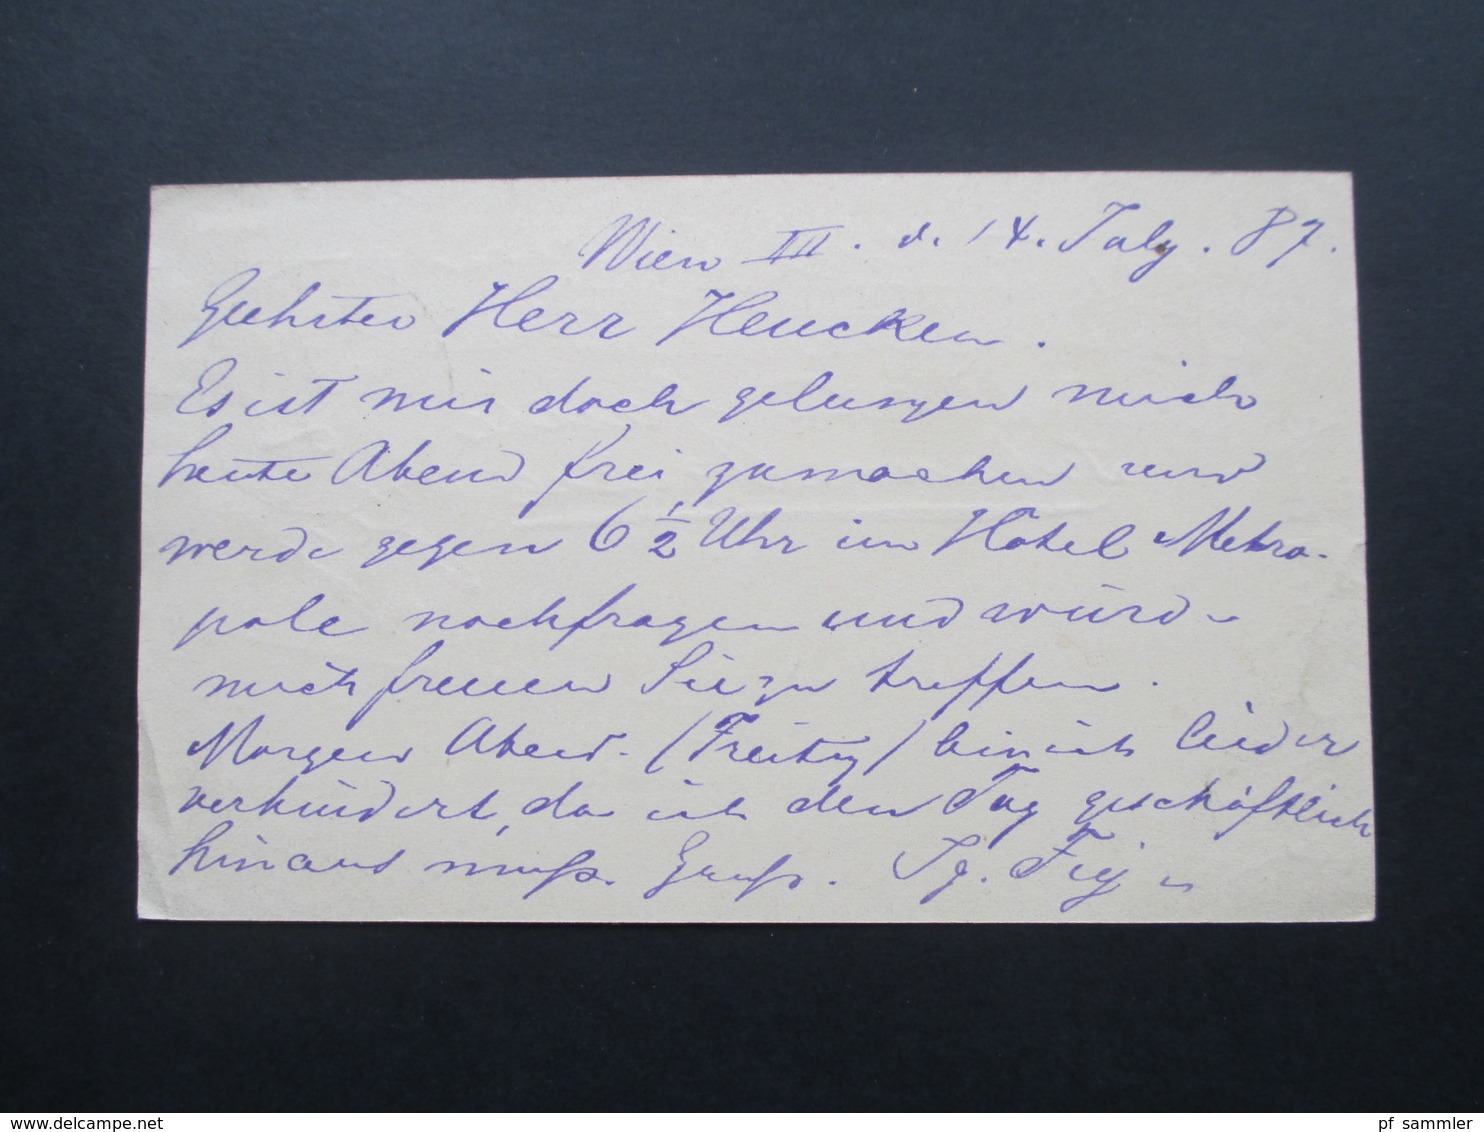 Wien III. d. 14. July. 87.
Geehrter Herr Heucken.
Es ist mir doch gelungen mich
heute Abend frei zumachen und
werde gegen 6 1/2 Uhr im Hotel Metro-
pole nachfragen und würde
mich freuen Sie zu treffen.
Morgen Abend (Freitag) bin ich leider
verhindert, da ich den Tag geschäftlich
hinaus muß. Gruß.
www.delcampe.net
pf_sammler